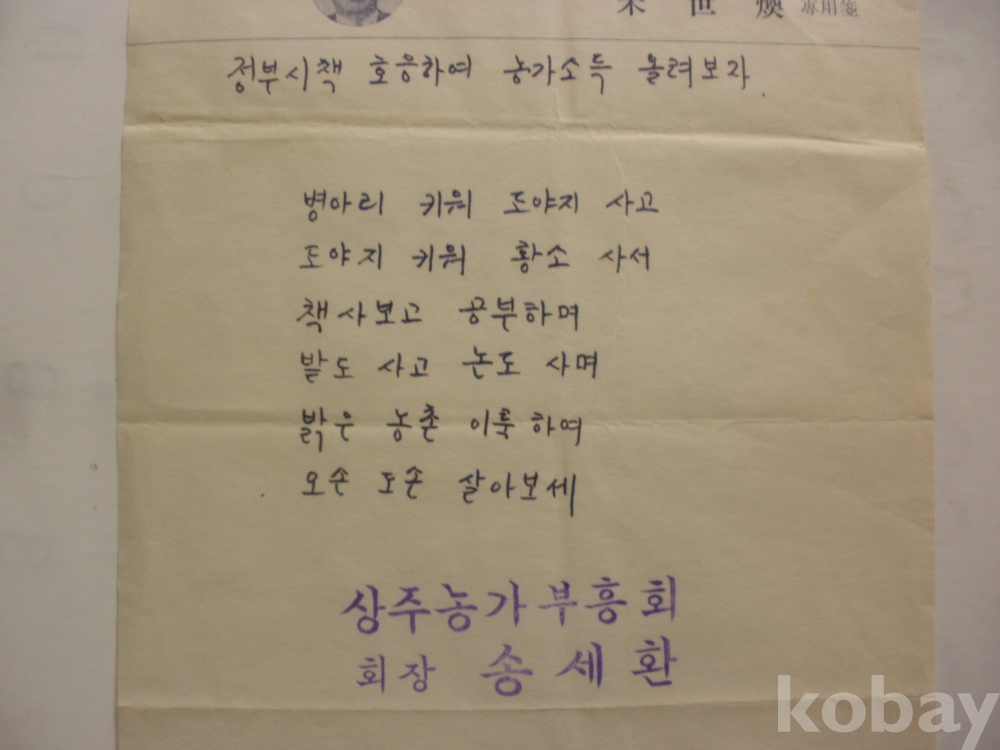 宋 世 煥 専用箋
정부시책 호응하여 농가소득 올려보자.
병아리 키워 도야지 사고
도야지 키워 황소 사서
책사보고 공부하며
밭도 사고 논도 사며
밝은 농촌 이룩하여
오손 도손 살아보세
상주농가부흥회
회장 송세환
kobay